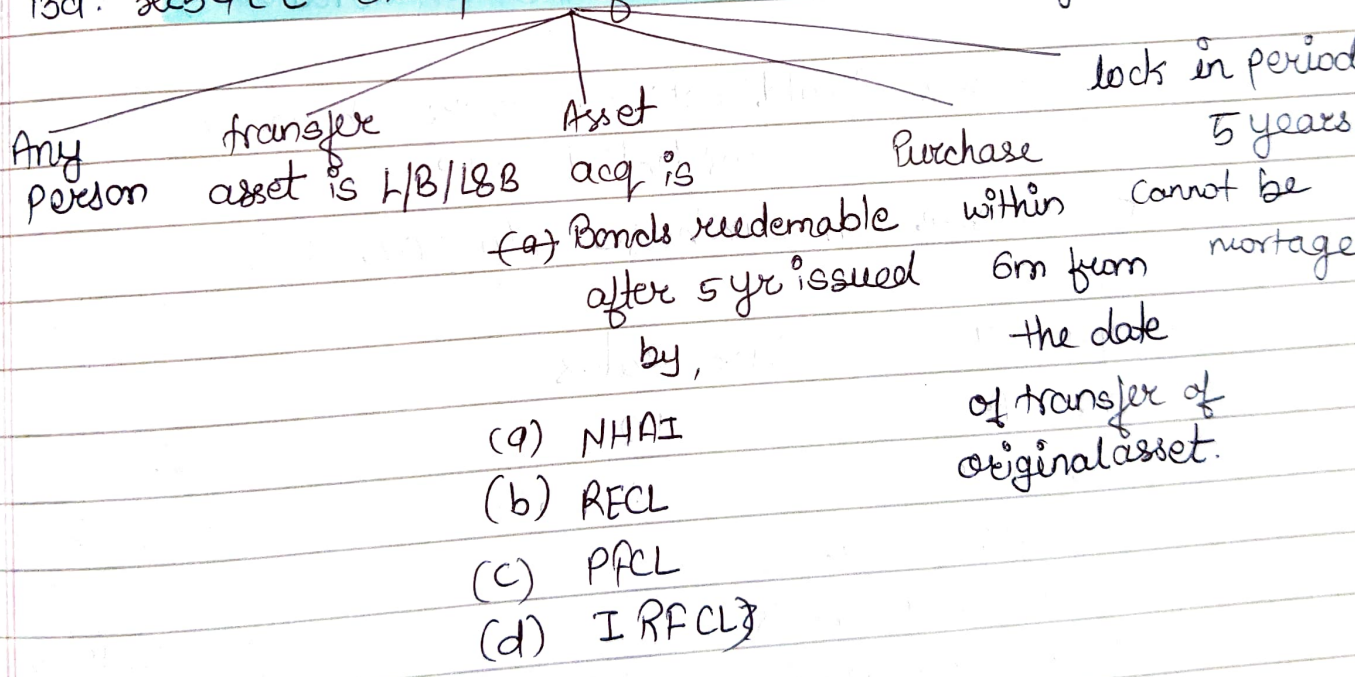 Any person
transfer asset is L/B/L&B
Asset acq is
(a) Bonds reedemable
after 5 yr issued
by,
(a) NHAI
(b) RECL
(c) PFCL
(d) IRFCL
Purchase
within
6m from
the date
of transfer of
original asset.
lock in period
5 years
Cannot be
mortage